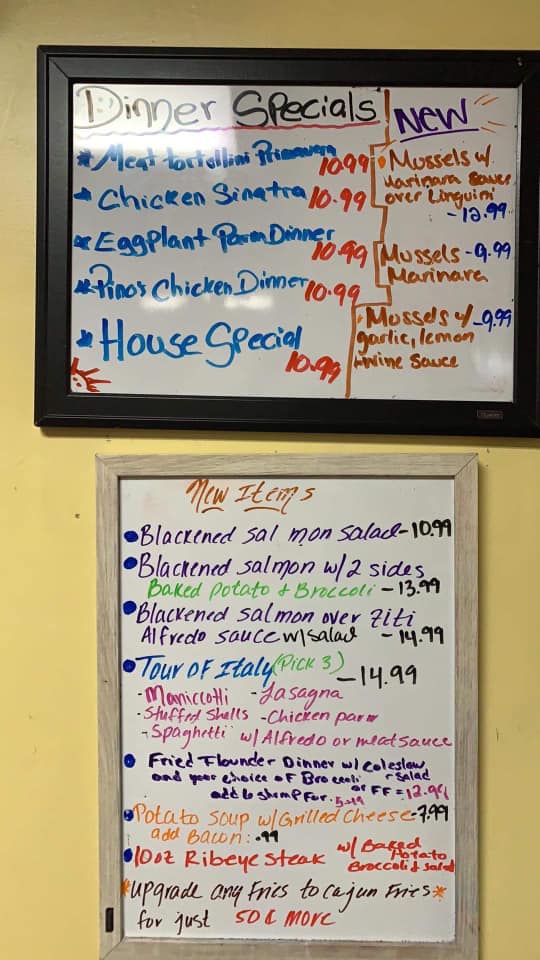 Dinner Specials
* Meat tortellini Primavera 10.99
* Chicken Sinatra 10.99
* Eggplant Parm Dinner 10.99
* Pino's Chicken Dinner 10.99
* House Special 10.99
NEW
Mussels w/
Marinara Sauce
over Linguini
- 12.99
Mussels - 9.99
Marinara
Mussels w/ - 9.99
garlic, lemon
+ wine Sauce
New Items
• Blackened salmon salad - 10.99
• Blackened salmon w/ 2 sides
Baked potato + Broccoli - 13.99
• Blackened salmon over ziti
Alfredo sauce w/salad - 14.99
• Tour of Italy (Pick 3) - 14.99
- Maniccotti - Lasagna
- Stuffed Shells - Chicken parm
- Spaghetti w/ Alfredo or meat sauce
• Fried Flounder Dinner w/ coleslaw,
and your choice of Broccoli r salad
or FF = 12.99
add 6 shrimp for
• Potato soup w/ Grilled Cheese - 7.99
add Bacon: .99
• 10oz Ribeye Steak w/ Baked
Potato
Broccoli & salad
*upgrade any Fries to Cajun Fries*
for just 50¢ more